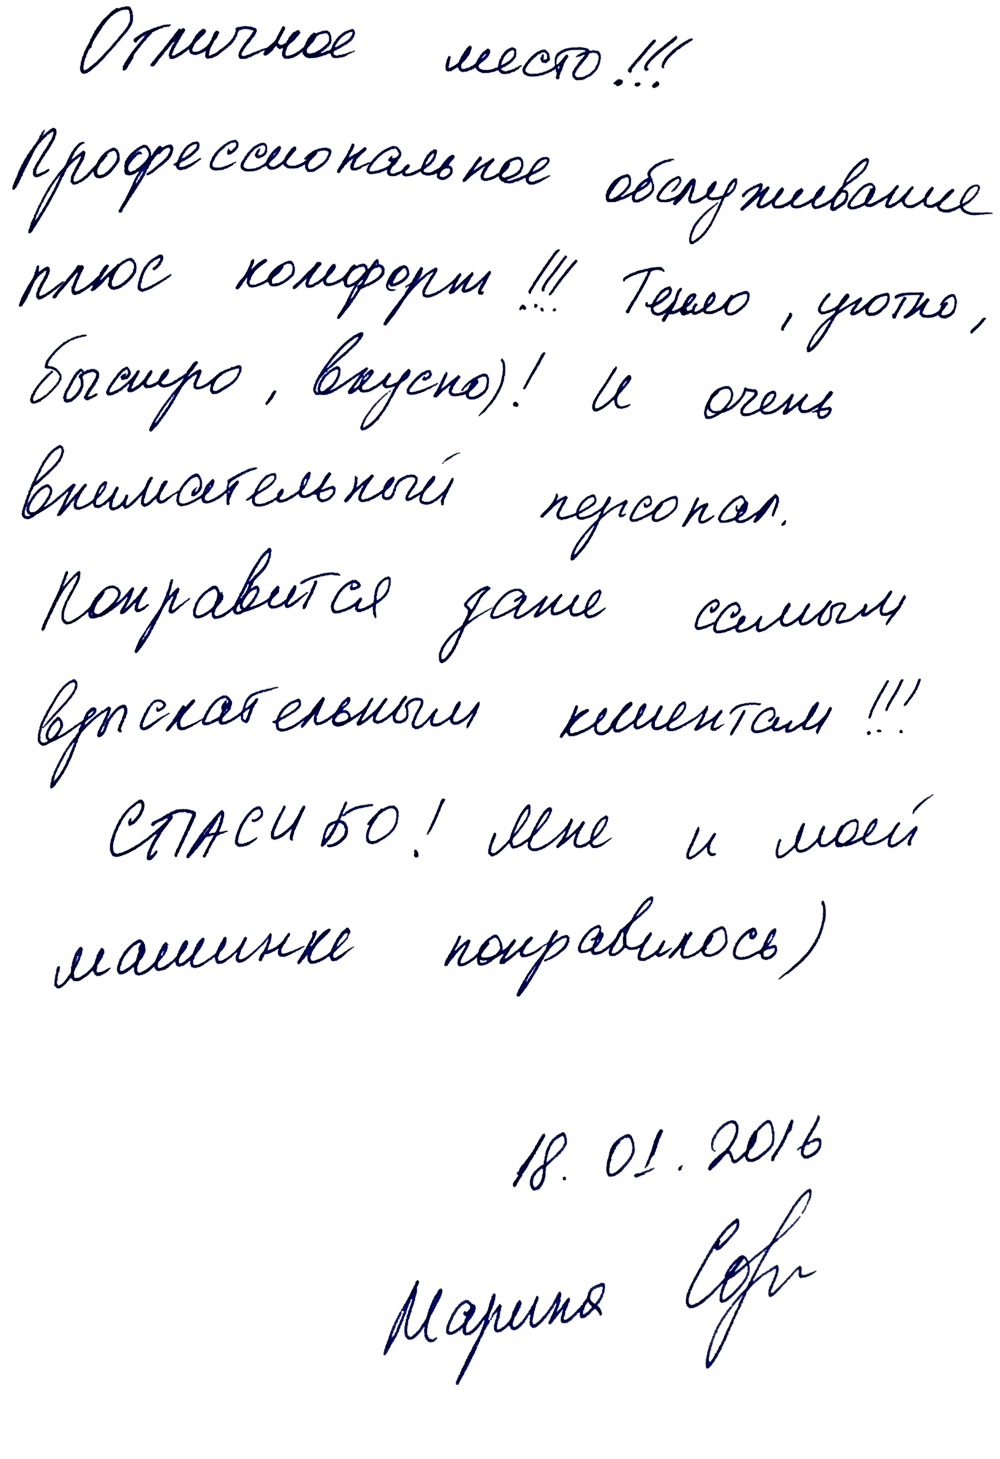 Отличное место!!!
Профессиональное обслуживание
плюс комфорт!!! Тепло, уютно,
быстро, вкусно)! И очень
внимательный персонал.
Понравится даже самым
взыскательным клиентам!!!
СПАСИБО! Мне и моей
машинке понравилось)
18.01.2016
Марина